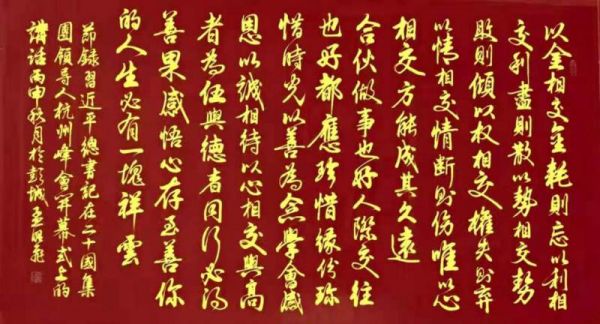 以金相交金耗則忘以利相
交利盡則散以勢相交勢
敗則傾以權相交權失則弃
以情相交情斷則伤唯以心
相交方能成其久遠
合伙做事也好人際交往
也好都應珍惜缘份珎
惜時光以善為念學會感
恩以誠相待以心相交與高
者為伍與德者同行必得
善果感悟心存至善你
的人生必有一塊祥雲
節録習近平總書記在二十國集
團領導人杭州峰會開幕式上的
講話丙申秋月於彭城